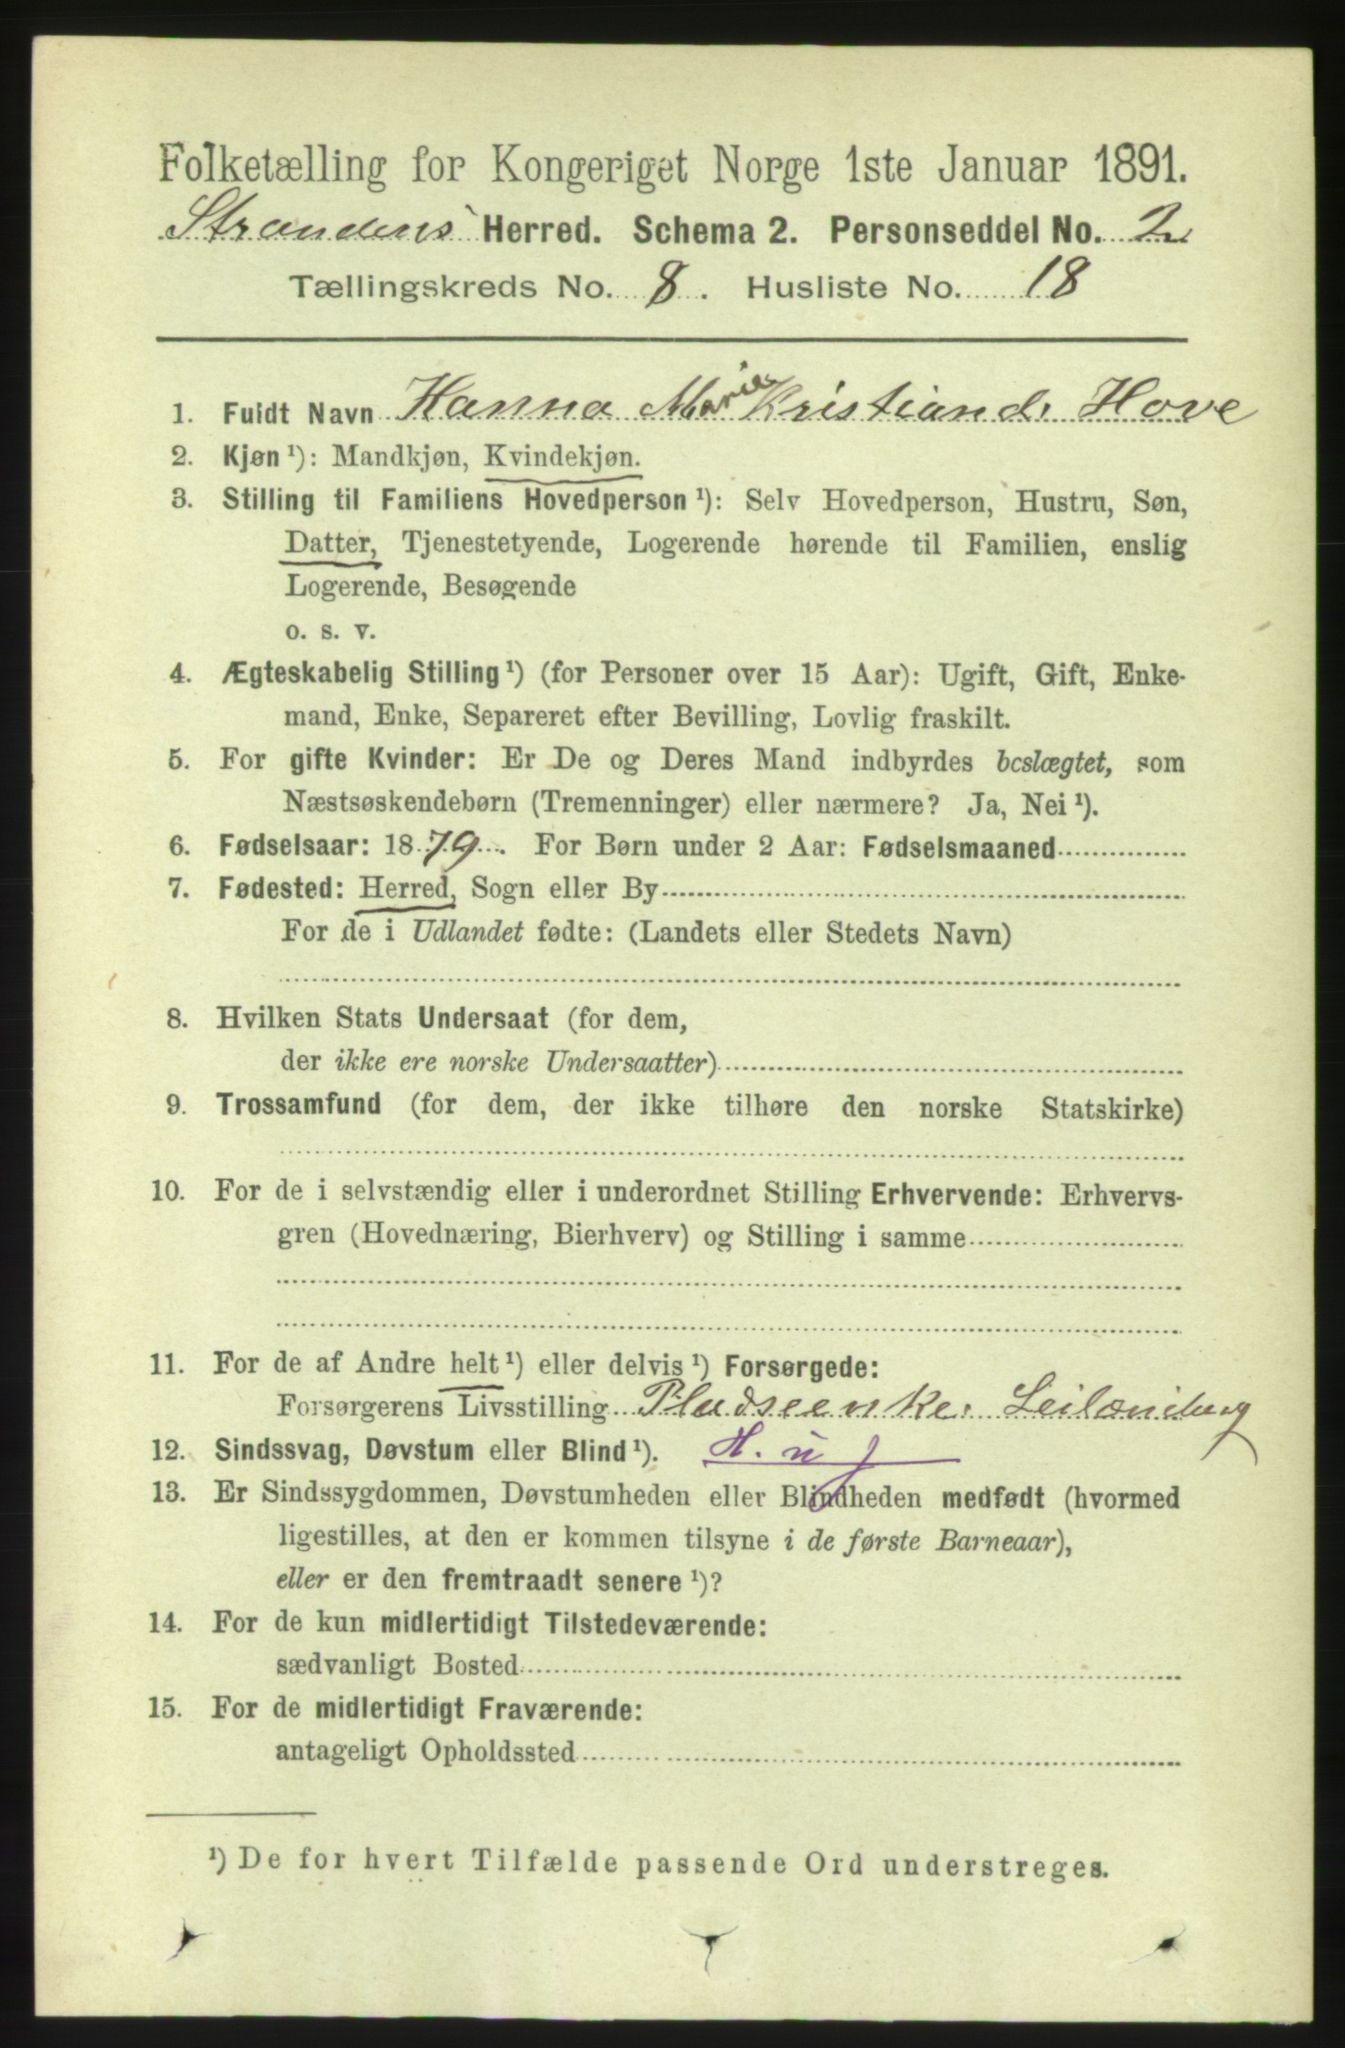 Folketælling for Kongeriget Norge 1ste Januar 1891.
Strandens Herred. Schema 2. Personseddel No. 2
Tællingskreds No. 8. Husliste No. 18
1. Fuldt Navn Hanna Marie Kristiansd. Hove
2. Kjøn ¹): Mandkjøn, Kvindekjøn.
3. Stilling til Familiens Hovedperson ¹): Selv Hovedperson, Hustru, Søn,
Datter, Tjenestetyende, Logerende hørende til Familien, enslig
Logerende, Besøgende
o. s. v.
4. Ægteskabelig Stilling ¹) (for Personer over 15 Aar): Ugift, Gift, Enke-
mand, Enke, Separeret efter Bevilling, Lovlig fraskilt.
5. For gifte Kvinder: Er De og Deres Mand indbyrdes beslægtet, som
Næstsøskendebørn (Tremenninger) eller nærmere? Ja, Nei ¹).
6. Fødselsaar: 1879. For Børn under 2 Aar: Fødselsmaaned
7. Fødested: Herred, Sogn eller By
For de i Udlandet fødte: (Landets eller Stedets Navn)
8. Hvilken Stats Undersaat (for dem,
der ikke ere norske Undersaatter)
9. Trossamfund (for dem, der ikke tilhøre den norske Statskirke)
10. For de i selvstændig eller i underordnet Stilling Erhvervende: Erhvervs-
gren (Hovednæring, Bierhverv) og Stilling i samme
11. For de af Andre helt ¹) eller delvis ¹) Forsørgede:
Forsørgerens Livsstilling Pladseenke.
12. Sindssvag, Døvstum eller Blind ¹).
13. Er Sindssygdommen, Døvstumheden eller Blindheden medfødt (hvormed
ligestilles, at den er kommen tilsyne i de første Barneaar),
eller er den fremtraadt senere ¹)?
14. For de kun midlertidigt Tilstedeværende:
sædvanligt Bosted
15. For de midlertidigt Fraværende:
antageligt Opholdssted
¹) De for hvert Tilfælde passende Ord understreges.